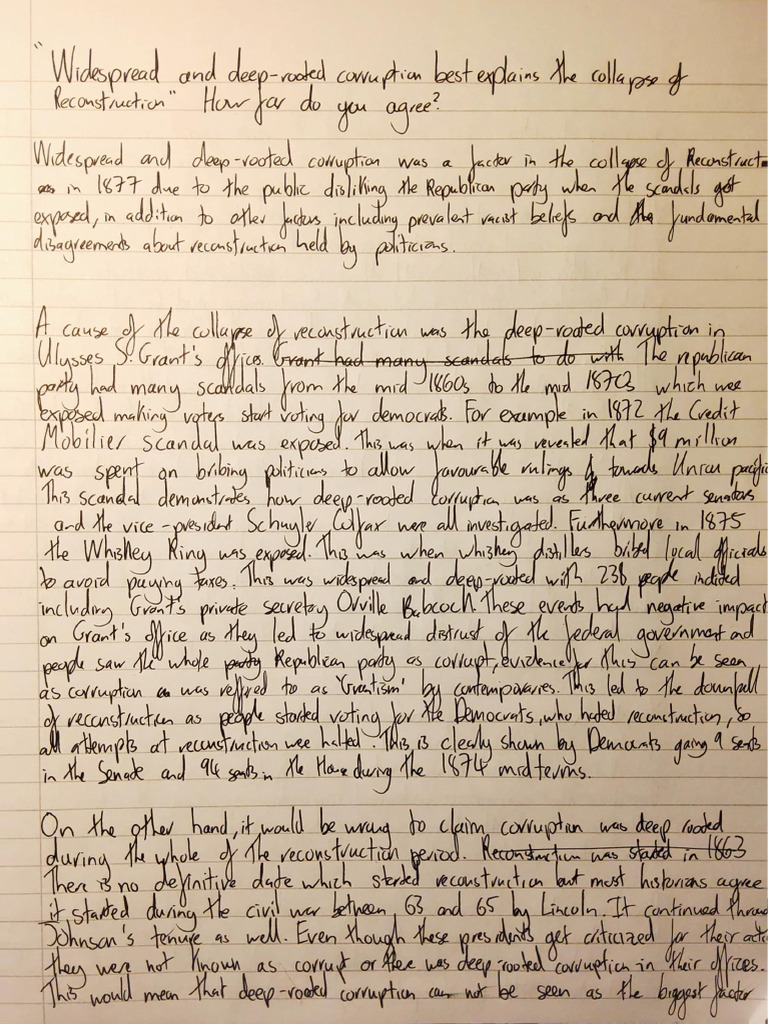 "Widespread and deep-rooted corruption best explains the collapse of
Reconstruction" How far do you agree?
Widespread and deep-rooted corruption was a factor in the collapse of Reconstruct
in 1877 due to the public disliking the Republican party when the scandals got
exposed, in addition to other factors including prevalent racist beliefs and the fundamental
disagreements about reconstruction held by politicians.
A cause of the collapse of reconstruction was the deep-rooted corruption in
Ulysses S. Grant's office. Grant had many scandals to do with The republican
party had many scandals from the mid 1860s to the mid 1870s which were
exposed making voters start voting for democrats. For example in 1872 the Credit
Mobilier scandal was exposed. This was when it was revealed that $9 million
was spent on bribing politicians to allow favourable rulings towards Union pacific
This scandal demonstrates how deep-rooted corruption was as three current senators
and the vice-president Schuyler Colfax were all investigated. Furthermore in 1875
the Whiskey Ring was exposed. This was when whiskey distillers bribed local officials
to avoid paying taxes. This was widespread and deep-rooted with 238 people indicted
including Grant's private secretary Orville Babcock. These events had negative impact
on Grant's office as they led to widespread distrust of the federal government and
people saw the whole party Republican party as corrupt, evidence for this can be seen
as corruption was reffired to as 'Grantism' by contemporaries. This led to the downfall
of reconstruction as people started voting for the Democrats, who hated reconstruction, so
all attempts at reconstruction were halted. This is clearly shown by Democrats gaing 9 seats
in the Senate and 94 seats in the House during the 1874 midterms.
On the other hand, it would be wrong to claim corruption was deep rooted
during the whole of the reconstruction period. Reconstruction was started in 1863
There is no definitive date which started reconstruction but most historians agree
it started during the civil war between 63 and 65 by Lincoln. It continued throu
Johnson's tenure as well. Even though these presidents get criticized for their acti
they were not known as corrupt or there was deep-rooted corruption in their offices.
This would mean that deep-rooted corruption can not be seen as the biggest factor